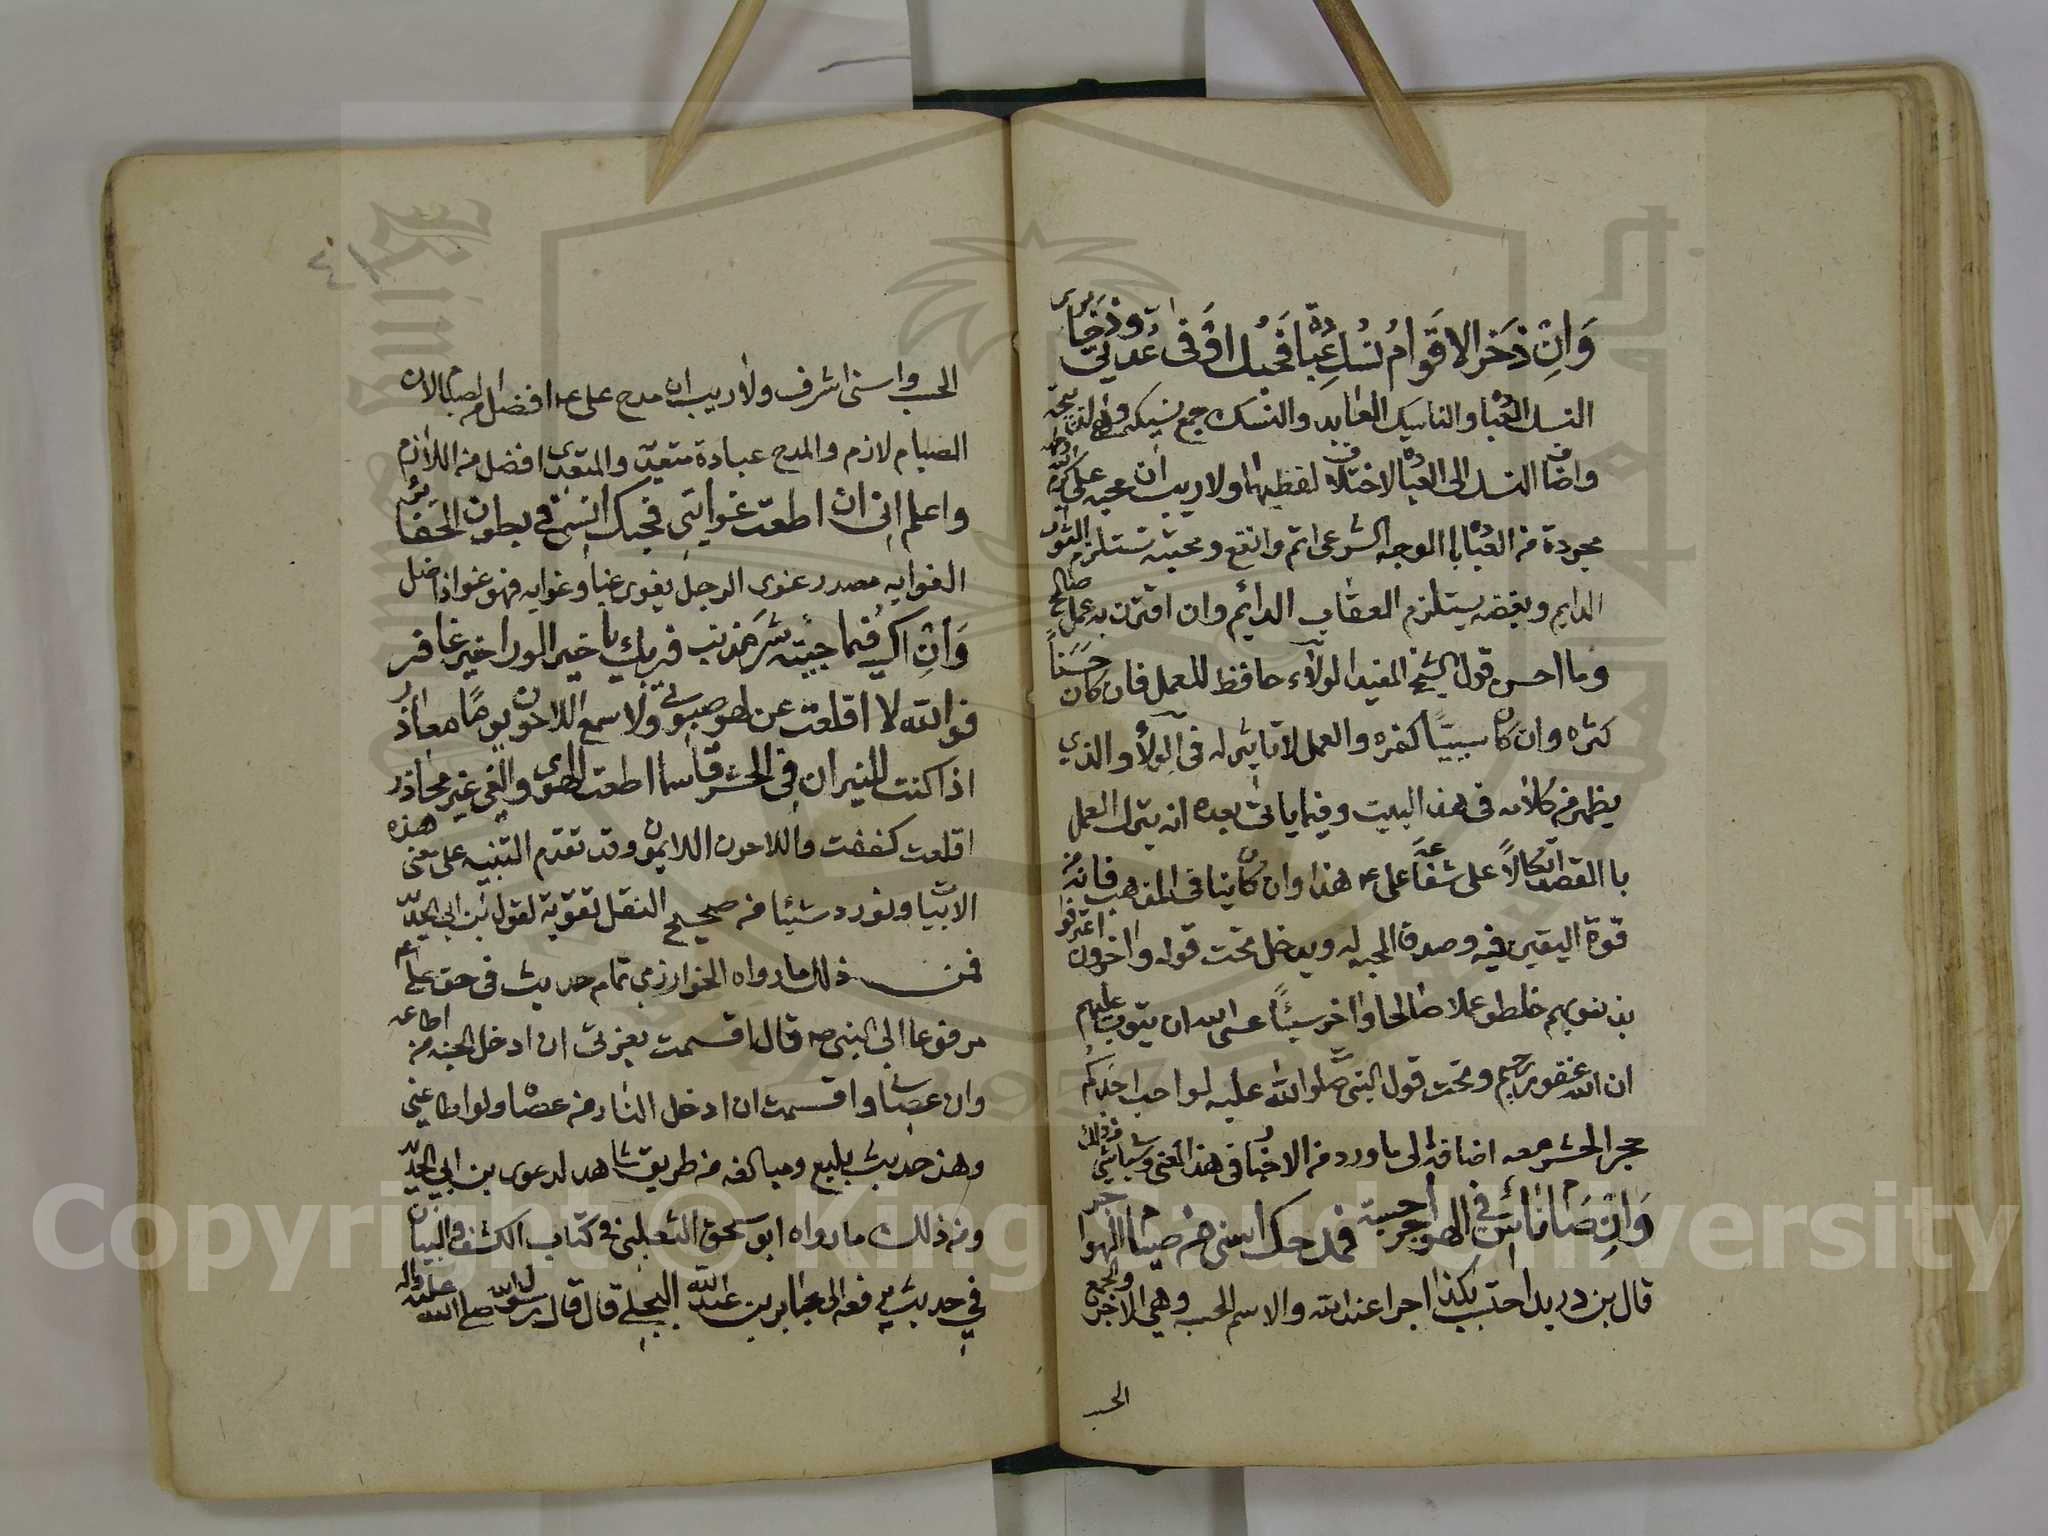 وَاِنْ ذَخَرَ الاَقَوامُ نُسْك عِبادة فَحُبّك اَوْفى عُدّتي وذخائري
النسك العبادة والناسك العابد والنسك جمع نسيكه وهي الذبيحة
واضاف النسك الى العبادة لاختلاف لفظيهما ولا ريب ان محبه علي كرم الله وجهه
مجردة من العبادة بالوجه الشرعي اتم وانفع ومحبته تستلزم الثواب
الدايم وبغضه يستلزم العقاب الدائم وان اقترن به عمل صالح
وما احسن قول الشيخ المفيد الولاء حافظ للعمل فان كان حَسَناً
كثره وان كان سيئاً كفره والعمل لا تاثير له في الولاء والذي
يظهر من كلامه في هذا البيت وفيما ياتي بعده انه يترك العمل
با القصد اتكالاً على شفاعَة على ع هذا وان كان ينافي المذهب فانه من
قوة اليقين فيه وصدق المحبه له ويدخل تحت قوله واخرون اعترفوا
بذنوبهم خلطو عملا صالحا واخر سيئاً عسى الله ان يتوب عليهم
ان الله غفور رحيم وتحت قول النبي صلوات الله عليه لو احب احدكم
حجر الحشر معه اضافة الى ما ورد من الاخبار في هذا المعنى وسياتي من ذلك
وَاِنْ صَامَ نَاسٌ في الهواجر حسبة فمدحك اسنى من صيام الهواجر
قال بن دريد احتسب بكذا اجرا عند الله والاسم الحسبه وهي الاجر والجمع
الحسب
الحسب واسنى اشرف ولا ريب ان مدح علي ع افضل من الصيام لان
الصيام لازم والمدح عبادة متعد والمتعدى افضل من اللازم
واعلم انى ان اطعت غوايتى فحبك انسى في بطون الحفائر
الغوايه مصدر غوى الرجل يغوى غيا وغوايه فهو غو اذا ضل
وَاِنْ اكُ فيما جئته شرَّ مذنب فربك يا خير الورا خير غافر
فوالله لا اقلعت عن لهو صبوتي ولا سمع اللاحون يومًا معاذر
اذا كنت للنيران في الحشر قاسما اطعت الهوى والغي غير محاذر
اقلعت كففت واللاحون اللايمون وقد تقدم التنبيه على معنى هذه
الابيات ونورد شيئا من صحيح النقل تقوية لقول بن ابي الحديد
فمن ذلك ما رواه الخوارزمي تمام حديث في حق علي ع
مرفوعا الى النبي ص قال اقسمت بعزتي ان ادخل الجنه من اطاعه
وان عصاني واقسمت ان ادخل النار من عصاه ولو اطاعني
وهذا حديث بليغ ومبالغه من طريق شاهد لدعوى بن ابي الحديد
ومن ذلك ما رواه ابو سحق الثعلبى في كتاب الكشف والبيان
في حديث يرفعه الى جابر بن عبد الله البجلي قال قال رسول الله صلى الله عليه واله
٤١
Copyright © King Saud University